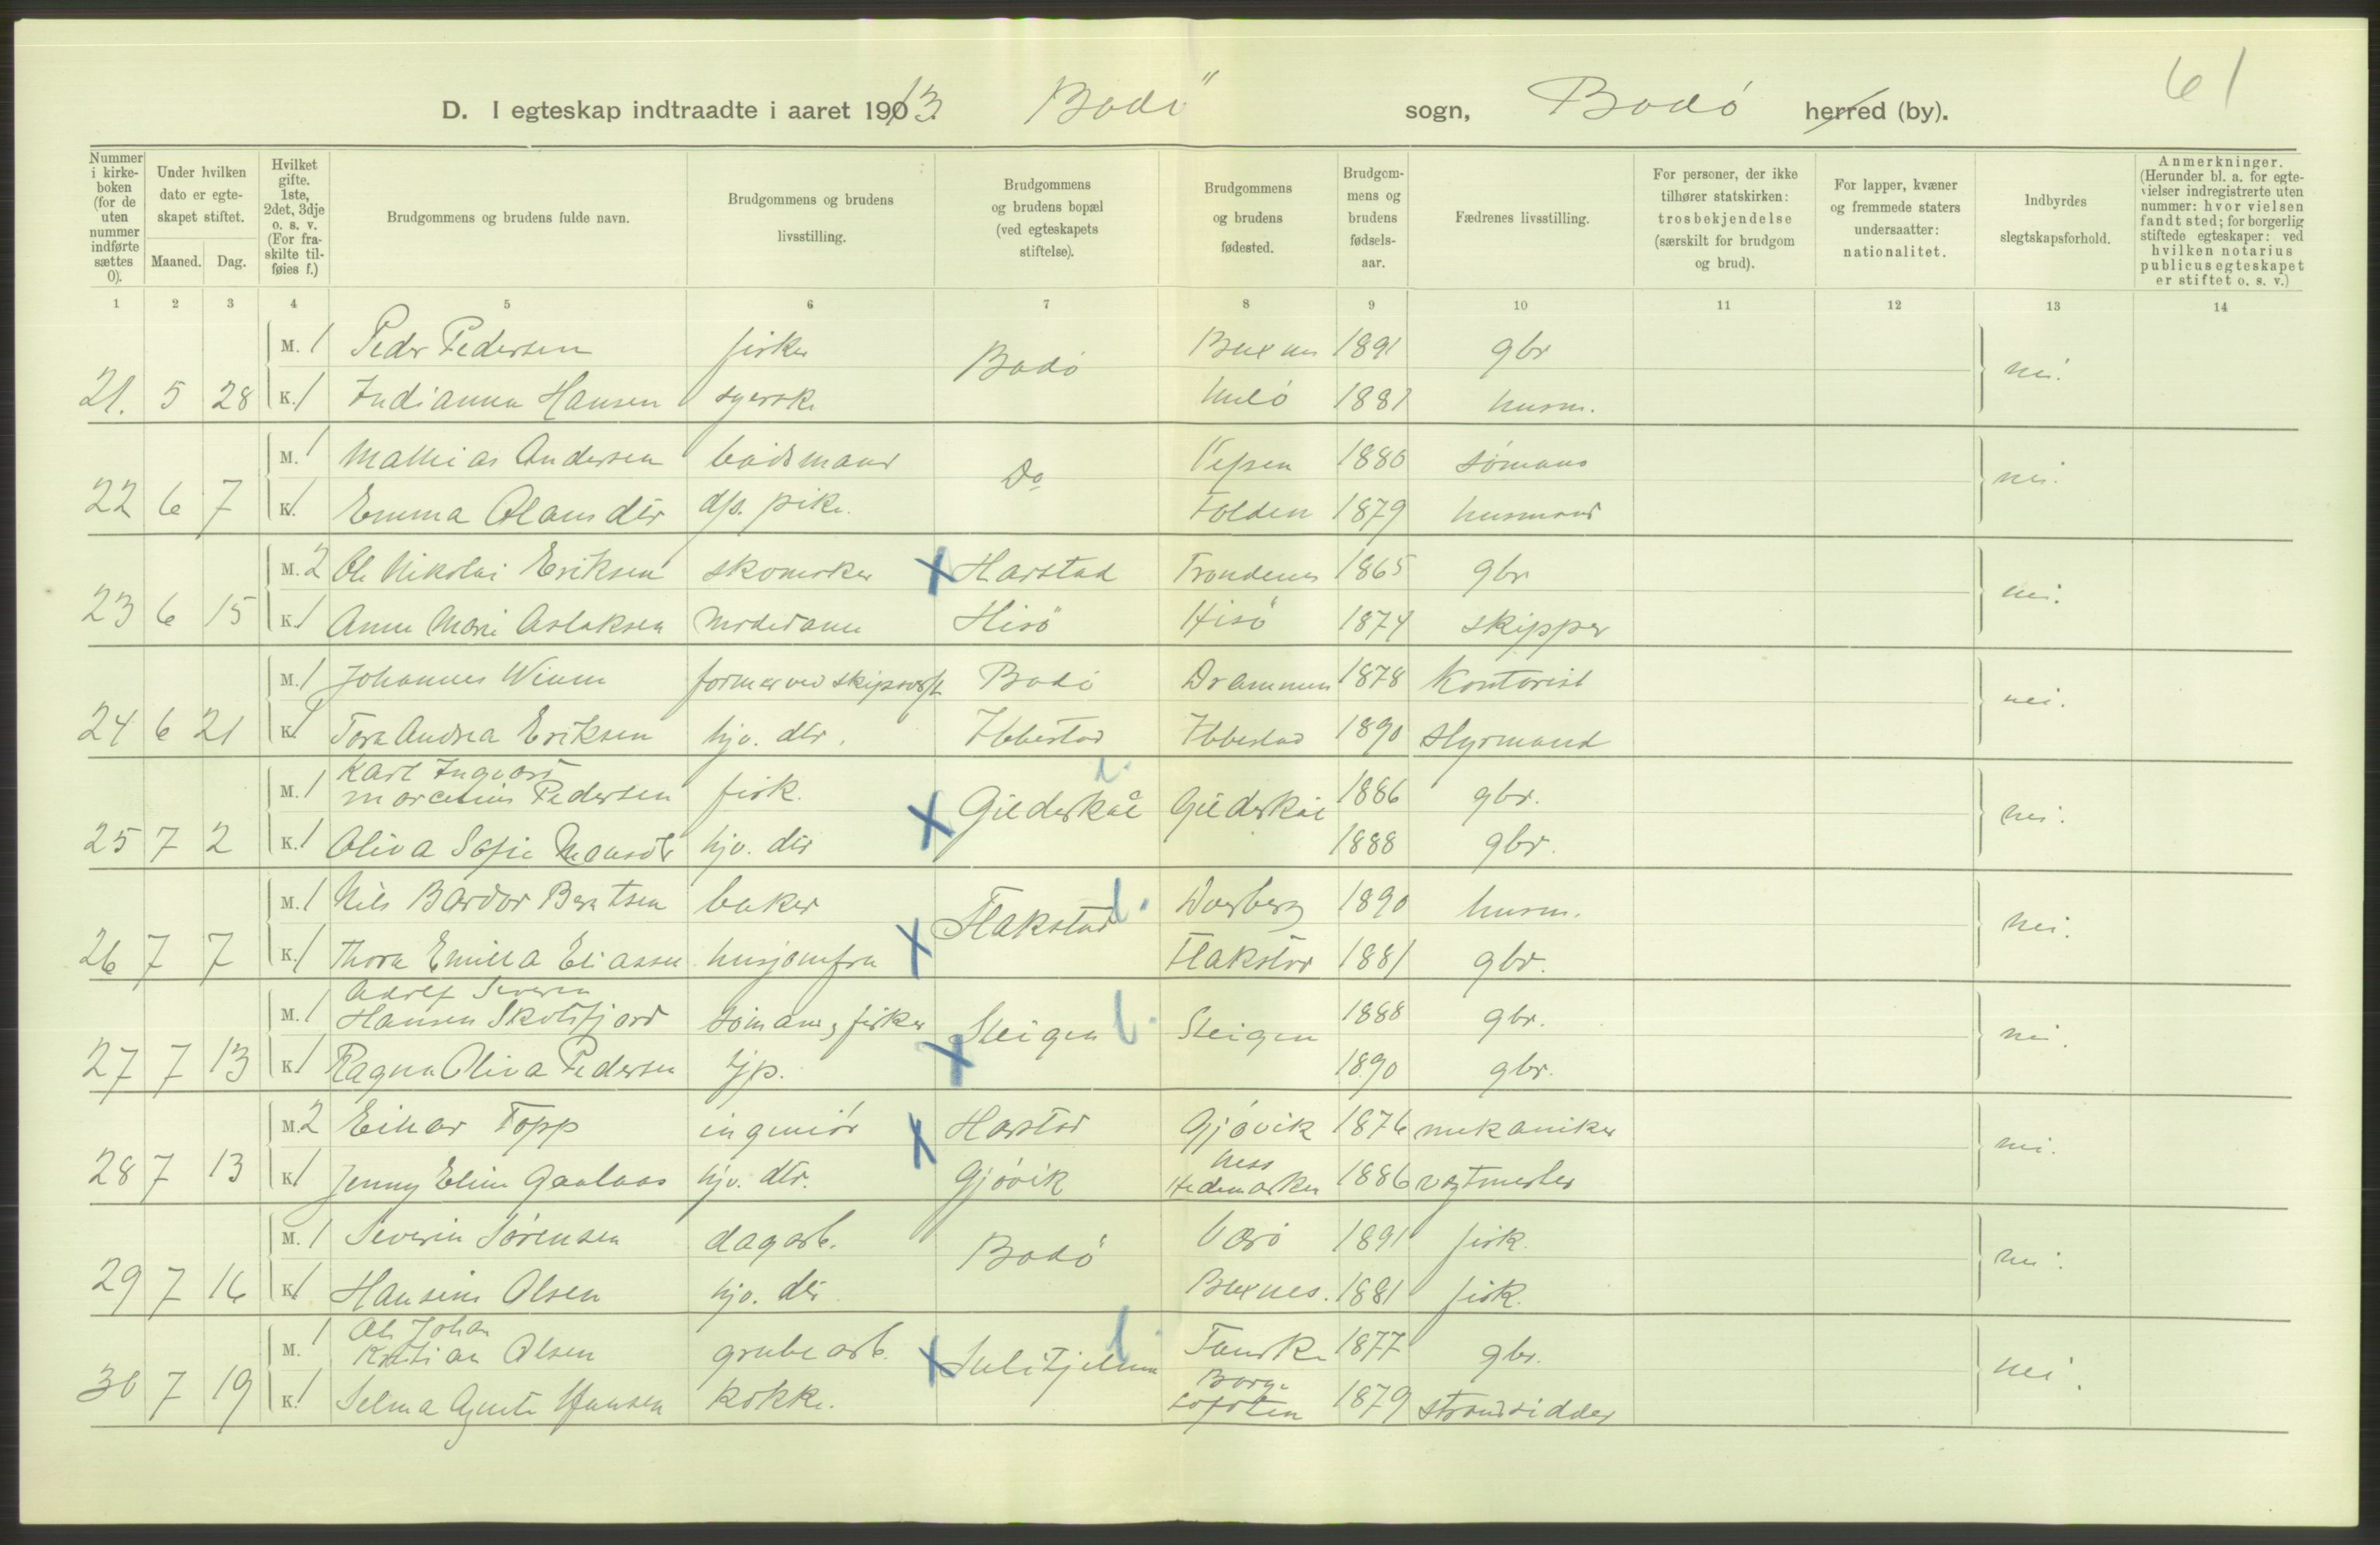 61
D. I egteskap indtraadte i aaret 1913. Bodö sogn, Bodó herred (by).
Nummer i kirkeboken (for de uten nummer indførte sættes 0).
Under hvilken dato er egteskapet stiftet.
Maaned. Dag.
Hvilket gifte. 1ste, 2det, 3dje o. s. v. (For fraskilte tilføies f.)
Brudgommens og brudens fulde navn.
Brudgommens og brudens livsstilling.
Brudgommens og brudens bopæl (ved egteskapets stiftelse).
Brudgommens og brudens fødested.
Brudgommens og brudens fødselsaar.
Fædrenes livsstilling.
For personer, der ikke tilhører statskirken: trosbekjendelse (særskilt for brudgom og brud).
For lapper, kvæner og fremmede staters undersaatter: nationalitet.
Indbyrdes slegtskapsforhold.
Anmerkninger. (Herunder bl. a. for egtevielser indregistrerte uten nummer: hvor vielsen fandt sted; for borgerlig stiftede egteskaper: ved hvilken notarius publicus egteskapet er stiftet o. s. v.)
1 2 3 4 5 6 7 8 9 10 11 12 13 14
M. 1 Peder Pedersen fisker Bodó Buxnes 1891 gbr nei.
21. 5 28 K. 1 Indianna Hansen syersk. 1881 husm.
M. 1 Mathias Andersen baadsmand Do Vefsen 1880 sómand nei.
22 6 7 K. 1 Emma Olausdtr djs. pike. Folden 1879 husmand
M. 2 Ole Nikolai Eriksen skomaker Harstad Trondenes 1865 gbr nei.
23 6 15 K. 1 Anne Marie Aslaksen Hisö Hisö 1874 skipper
M. 1 Johannes former ved skipsverft Bodó Drammen 1878 Kontorist nei.
24 6 21 K. 1 Tora Andrea Eriksen hjv. dtr. Ibbestad Ibbestad 1890 styrmand
M. 1 Karl Ingvart
Marcelius Pedersen fisk. Gildeskål Gildeskål 1886 gbr. nei.
25 7 2 K. 1 Oliva Sofie Monsdtr hjv. dtr 1888 gbr.
M. 1 Nils Bardor Berntsen baker Flakstad Dverberg 1890 husm. nei.
26 7 7 K. 1 Thora Emilia Eliassen husjomfru Flakstad 1881 gbr.
M. 1 Adolf Severin
Hansen Skotsfjord sömand, fisker Steigen Steigen 1888 gbr. nei.
27 7 13 K. 1 Ragna Oliva Pedersen tjp. 1890 gbr.
M. 2 Einar Topp ingeniór Harstad Gjóvik 1876 mekaniker nei.
28 7 13 K. 1 Jenny Eline Gaalaas hjv. dtr. Gjóvik Ness
Hedemarken 1886 vagtmester
M. 1 Severin Sörensen dagarb. Bodó Væró 1891 fisk. nei.
29 7 16 K. 1 Hansine Olsen hjv. dtr Buxnes. 1881 fisk.
M. 1 Ole Johan
Kristian Olsen grubearb. Sulitjelma Fauske 1877 gbr. nei.
30 7 19 K. 1 Selma Agnete Hansen kokke. Borge
Lofoten 1879 strandsidder